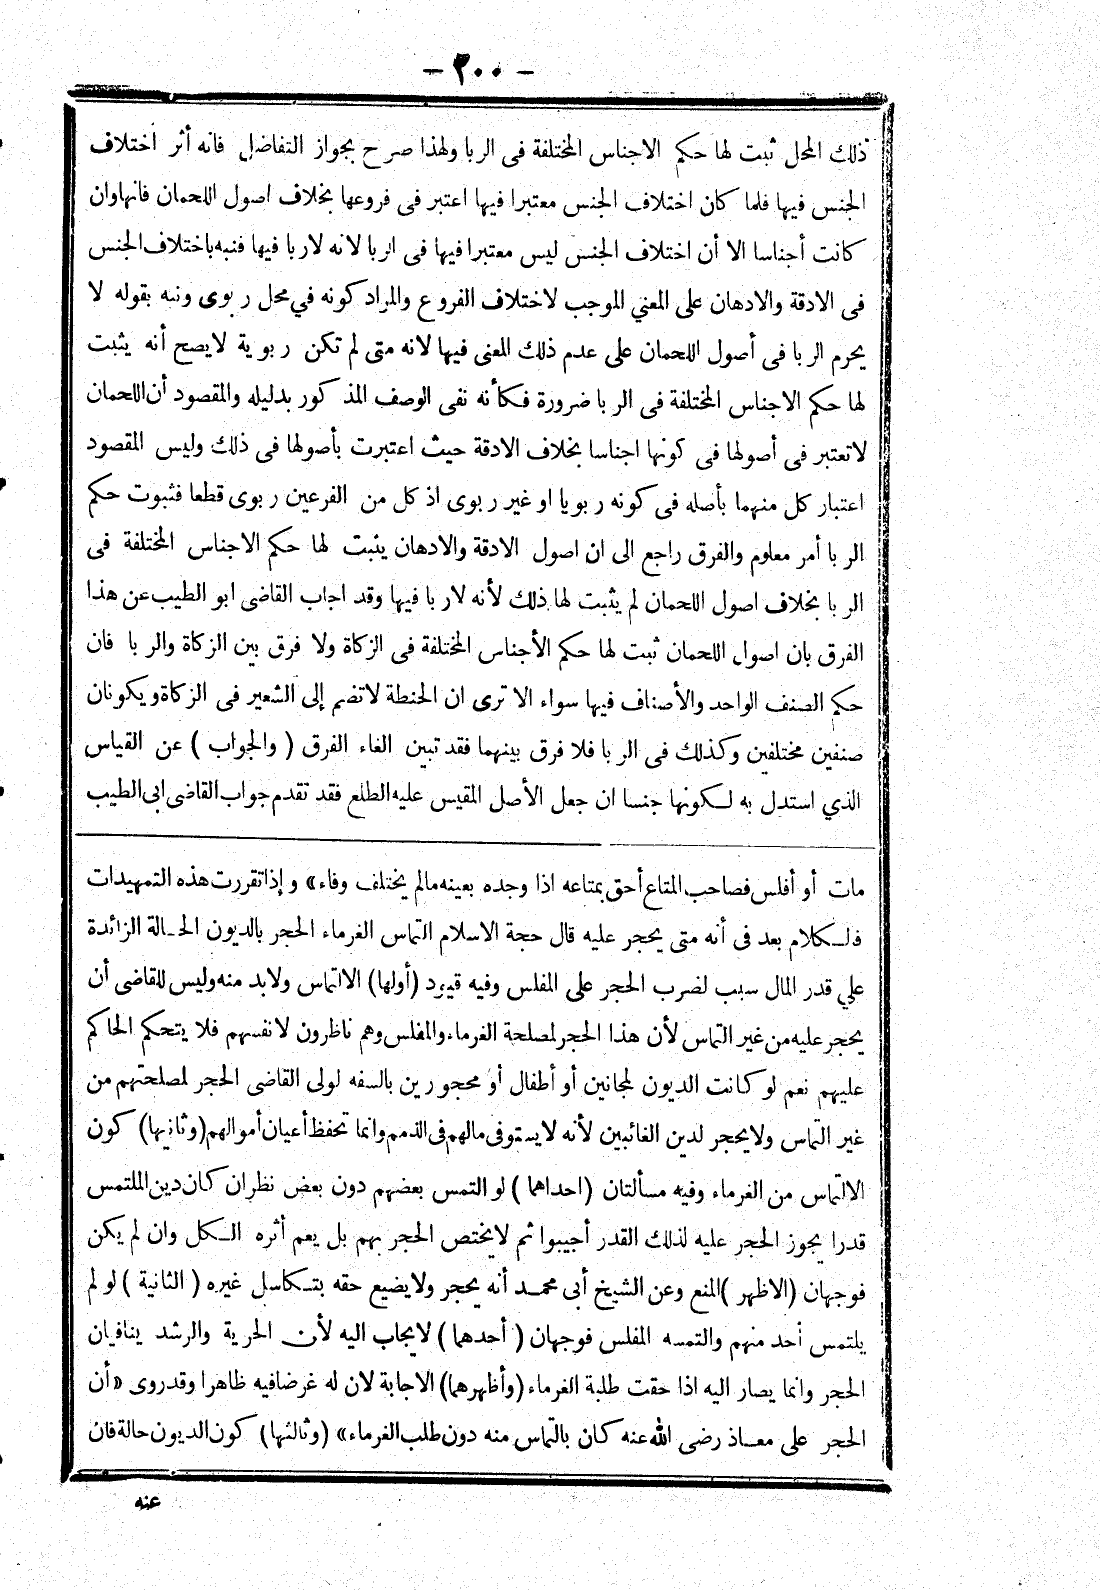 - ٢٠٠ -
ذلك المحل ثبت لها حكم الاجناس المختلفة فى الربا ولهذا صرح بجواز التفاضل فانه أثر اختلاف
الجنس فيها فلما كان اختلاف الجنس معتبرا فيها اعتبر فى فروعها بخلاف اصول اللحمان فانها وان
كانت أجناسا الا أن اختلاف الجنس ليس معتبرا فيها فى الربا لانه لا ربا فيها فنبه باختلاف الجنس
فى الادقة والادهان على المعني الموجب لاختلاف الفروع والمراد كونه في محل ربوى ونبه بقوله لا
يحرم الربا فى أصول اللحمان على عدم ذلك المعنى فيها لانه متى لم تكن ربوية لايصح أنه يثبت
لها حكم الاجناس المختلفة فى الربا ضرورة فكأنه نفى الوصف المذكور بدليله والمقصود أن اللحمان
لاتعتبر فى أصولها فى كونها اجناسا بخلاف الادقة حيث اعتبرت بأصولها فى ذلك وليس المقصود
اعتبار كل منهما بأصله فى كونه ربويا او غير ربوى اذ كل من الفرعين ربوى قطعا فثبوت حكم
الربا أمر معلوم والفرق راجع الى ان اصول الادقة والادهان يثبت لها حكم الاجناس المختلفة فى
الربا بخلاف اصول اللحمان لم يثبت لها ذلك لأنه لا ربا فيها وقد اجاب القاضى ابو الطيب عن هذا
الفرق بان اصول اللحمان ثبت لها حكم الأجناس المختلفة فى الزكاة ولا فرق بين الزكاة والربا فان
حكم الصنف الواحد والأصناف فيها سواء الا ترى ان الحنطة لاتضم إلى الشعير فى الزكاة ويكونان
صنفين مختلفين وكذلك فى الربا فلا فرق بينهما فقد تبين الغاء الفرق ( والجواب ) عن القياس
الذي استدل به لكونها جنسا ان جعل الأصل المقيس عليه الطلع فقد تقدم جواب القاضى ابى الطيب
مات أو أفلس فصاحب المتاع أحق بمتاعه اذا وجده بعينه مالم يختلف وفاء» وإذا تقررت هذه التمهيدات
فالكلام بعد فى أنه متى يحجر عليه قال حجة الاسلام التماس الغرماء الحجر بالديون الحالة الزائدة
علي قدر المال سبب لضرب الحجر على المفلس وفيه قيود (أولها) الالتماس ولابد منه وليس للقاضى أن
يحجر عليه من غير التماس لأن هذا الحجر لمصلحة الغرماء والمفلس وهم ناظرون لانفسهم فلا يتحكم الحاكم
عليهم نعم لو كانت الديون لمجانين أو أطفال أو محجورين بالسفه لولى القاضى الحجر لمصلحتهم من
غير التماس ولايحجر لدين الغائبين لأنه لايستوفى مالهم فى الذمم وانما تحفظ أعيان أموالهم (وثانيها) كون
الالتماس من الغرماء وفيه مسألتان (احداهما) لو التمس بعضهم دون بعض نظر ان كان دين الملتمس
قدرا يجوز الحجر عليه لذلك القدر أجيبوا ثم لايختص الحجر بهم بل يعم أثره الكل وان لم يكن
فوجهان (الاظهر) المنع وعن الشيخ أبى محمد أنه يحجر ولايضيع حقه بتكاسل غيره ( الثانية ) لو لم
يلتمس أحد منهم والتمسه المفلس فوجهان ( أحدهما ) لايجاب اليه لأن الحرية والرشد ينافيان
الحجر وانما يصار اليه اذا حقت طلبة الغرماء (وأظهرهما) الاجابة لان له غرضا فيه ظاهرا وقد روى «أن
الحجر على معاذ رضى الله عنه كان بالتماس منه دون طلب الغرماء» (وثالثها) كون الديون حالة فان
عنه